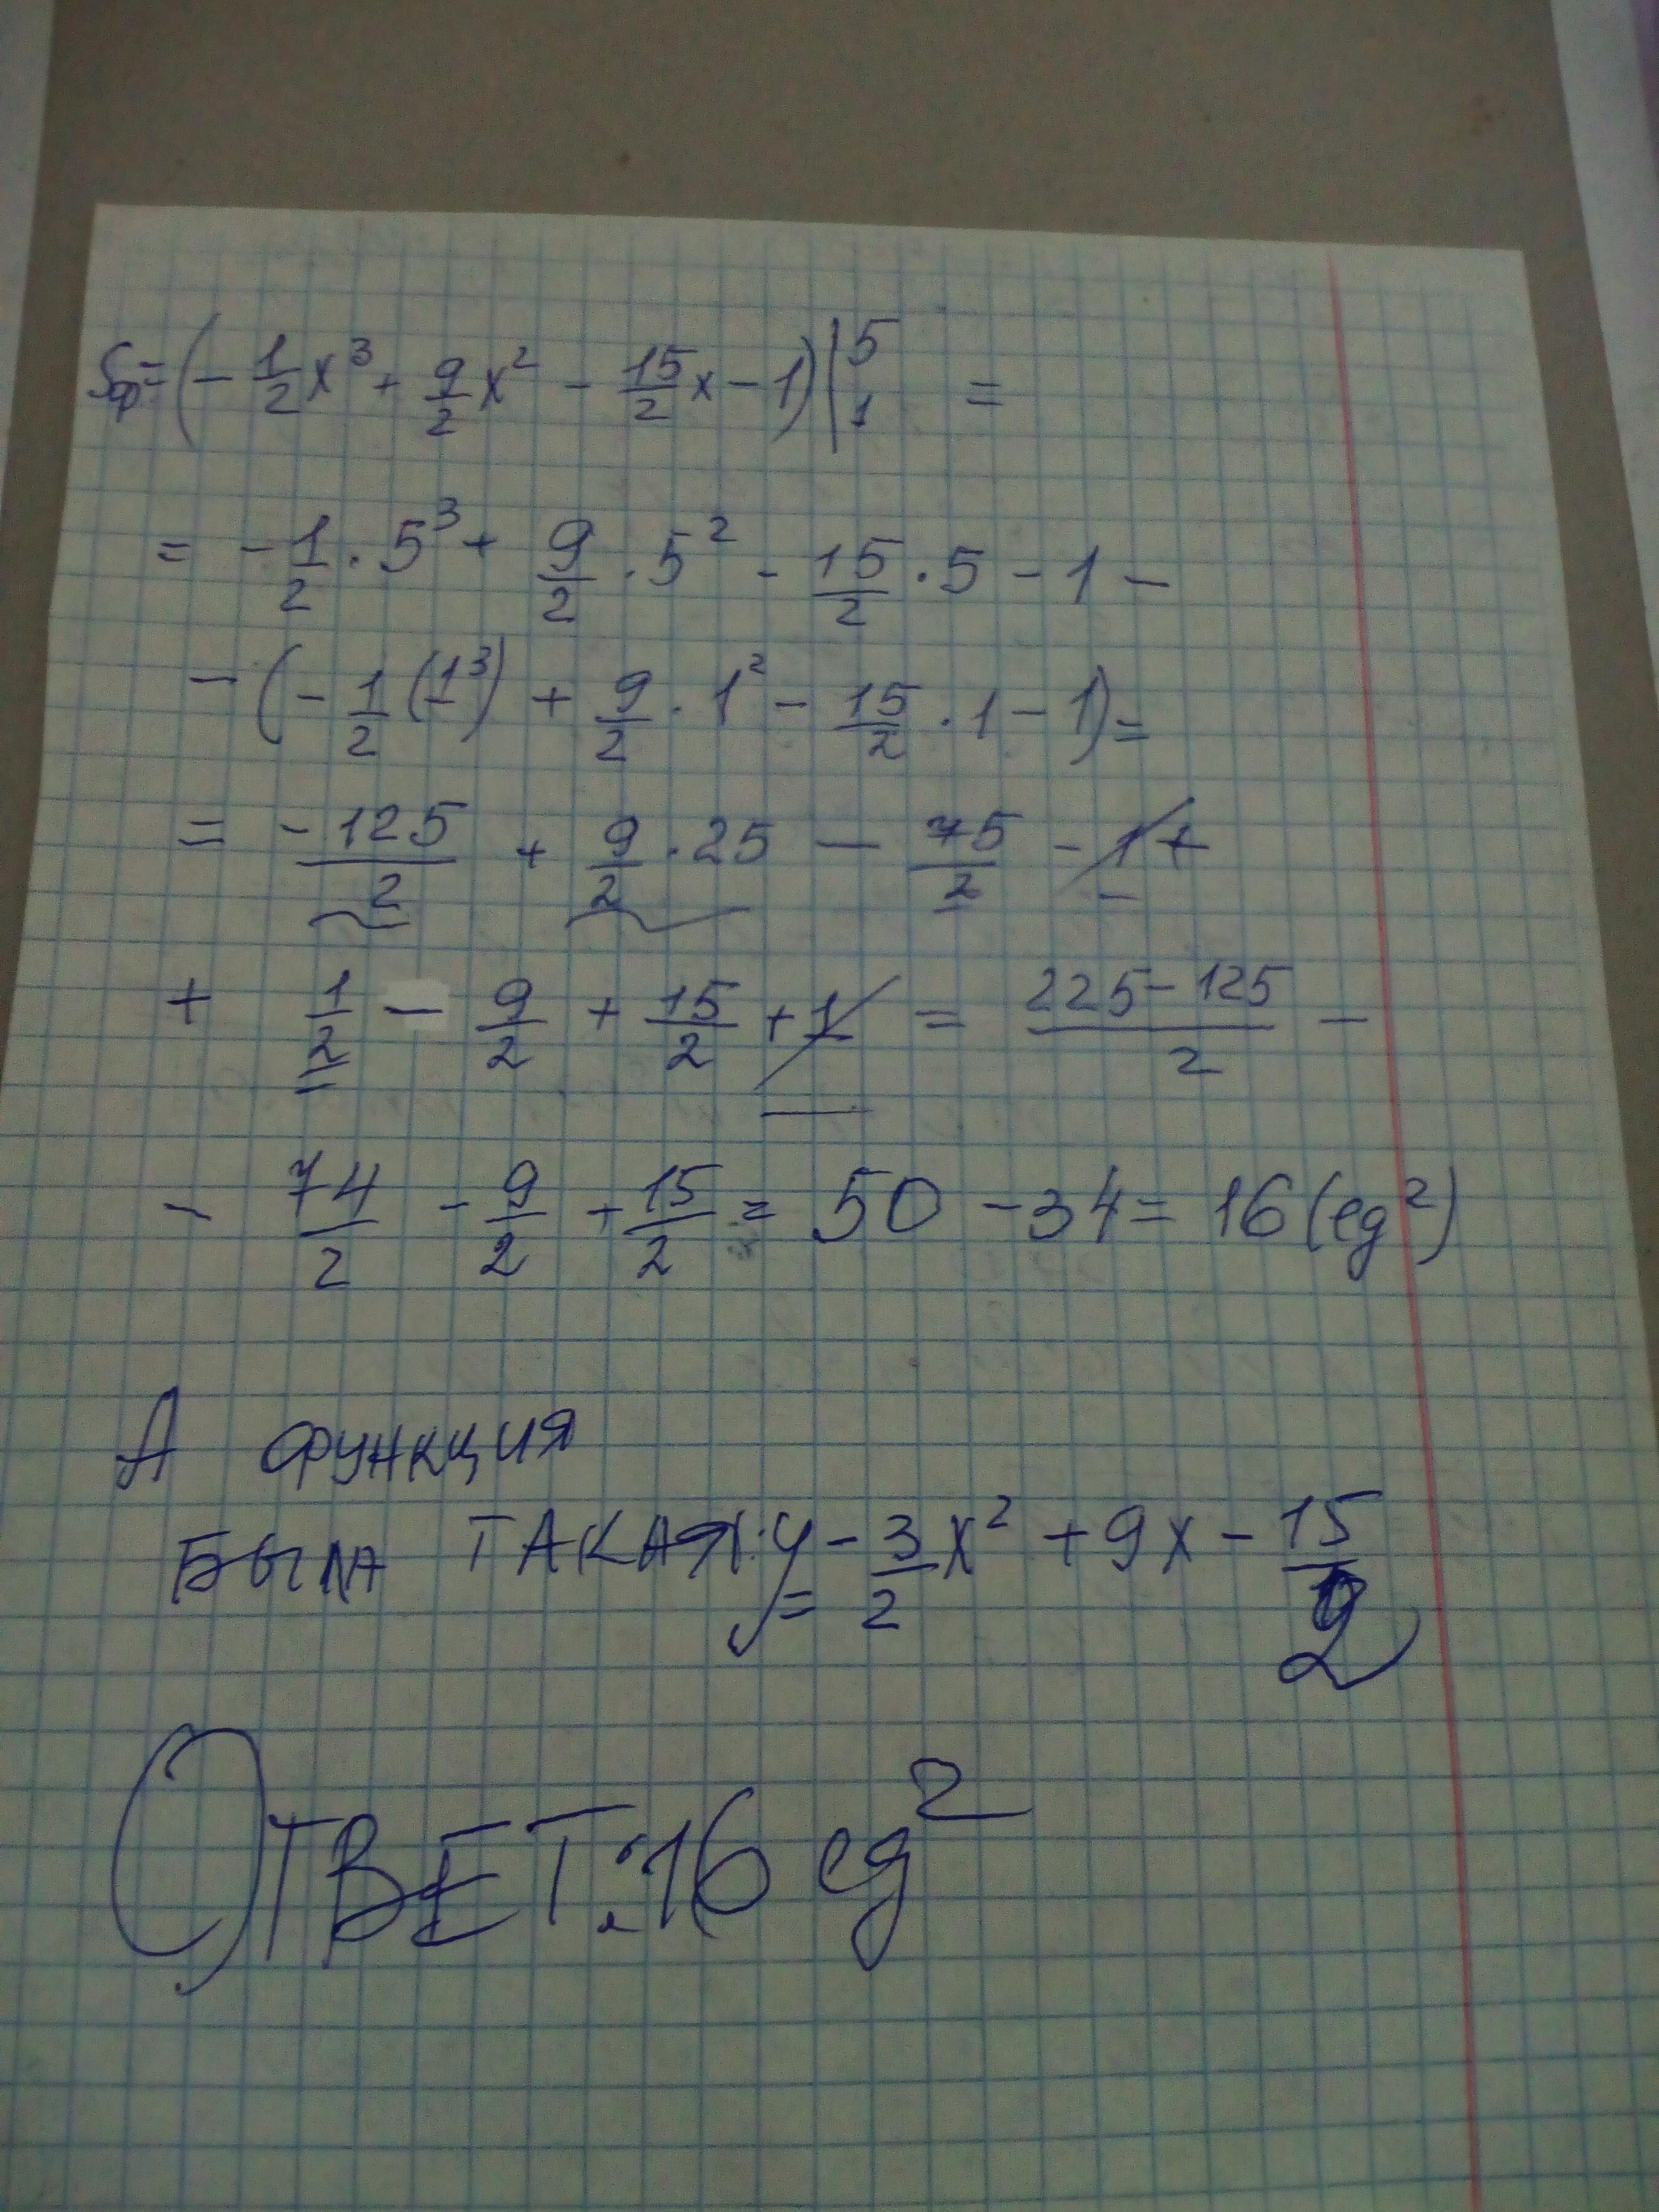 Sф = (-1/2 x³ + 9/2 x² - 15/2 x - 1) |⁵₁ =
= -1/2 · 5³ + 9/2 · 5² - 15/2 · 5 - 1 -
- (-1/2 (1³) + 9/2 · 1² - 15/2 · 1 - 1) =
= -125/2 + 9/2 · 25 - 75/2 - 1 +
+ 1/2 - 9/2 + 15/2 + 1 = 225-125/2 -
- 74/2 - 9/2 + 15/2 = 50 - 34 = 16 (ед²)
А ФУНКЦИЯ
БЫЛА ТАКАЯ: y = -3/2 x² + 9x - 15/2
ОТВЕТ: 16 ед²